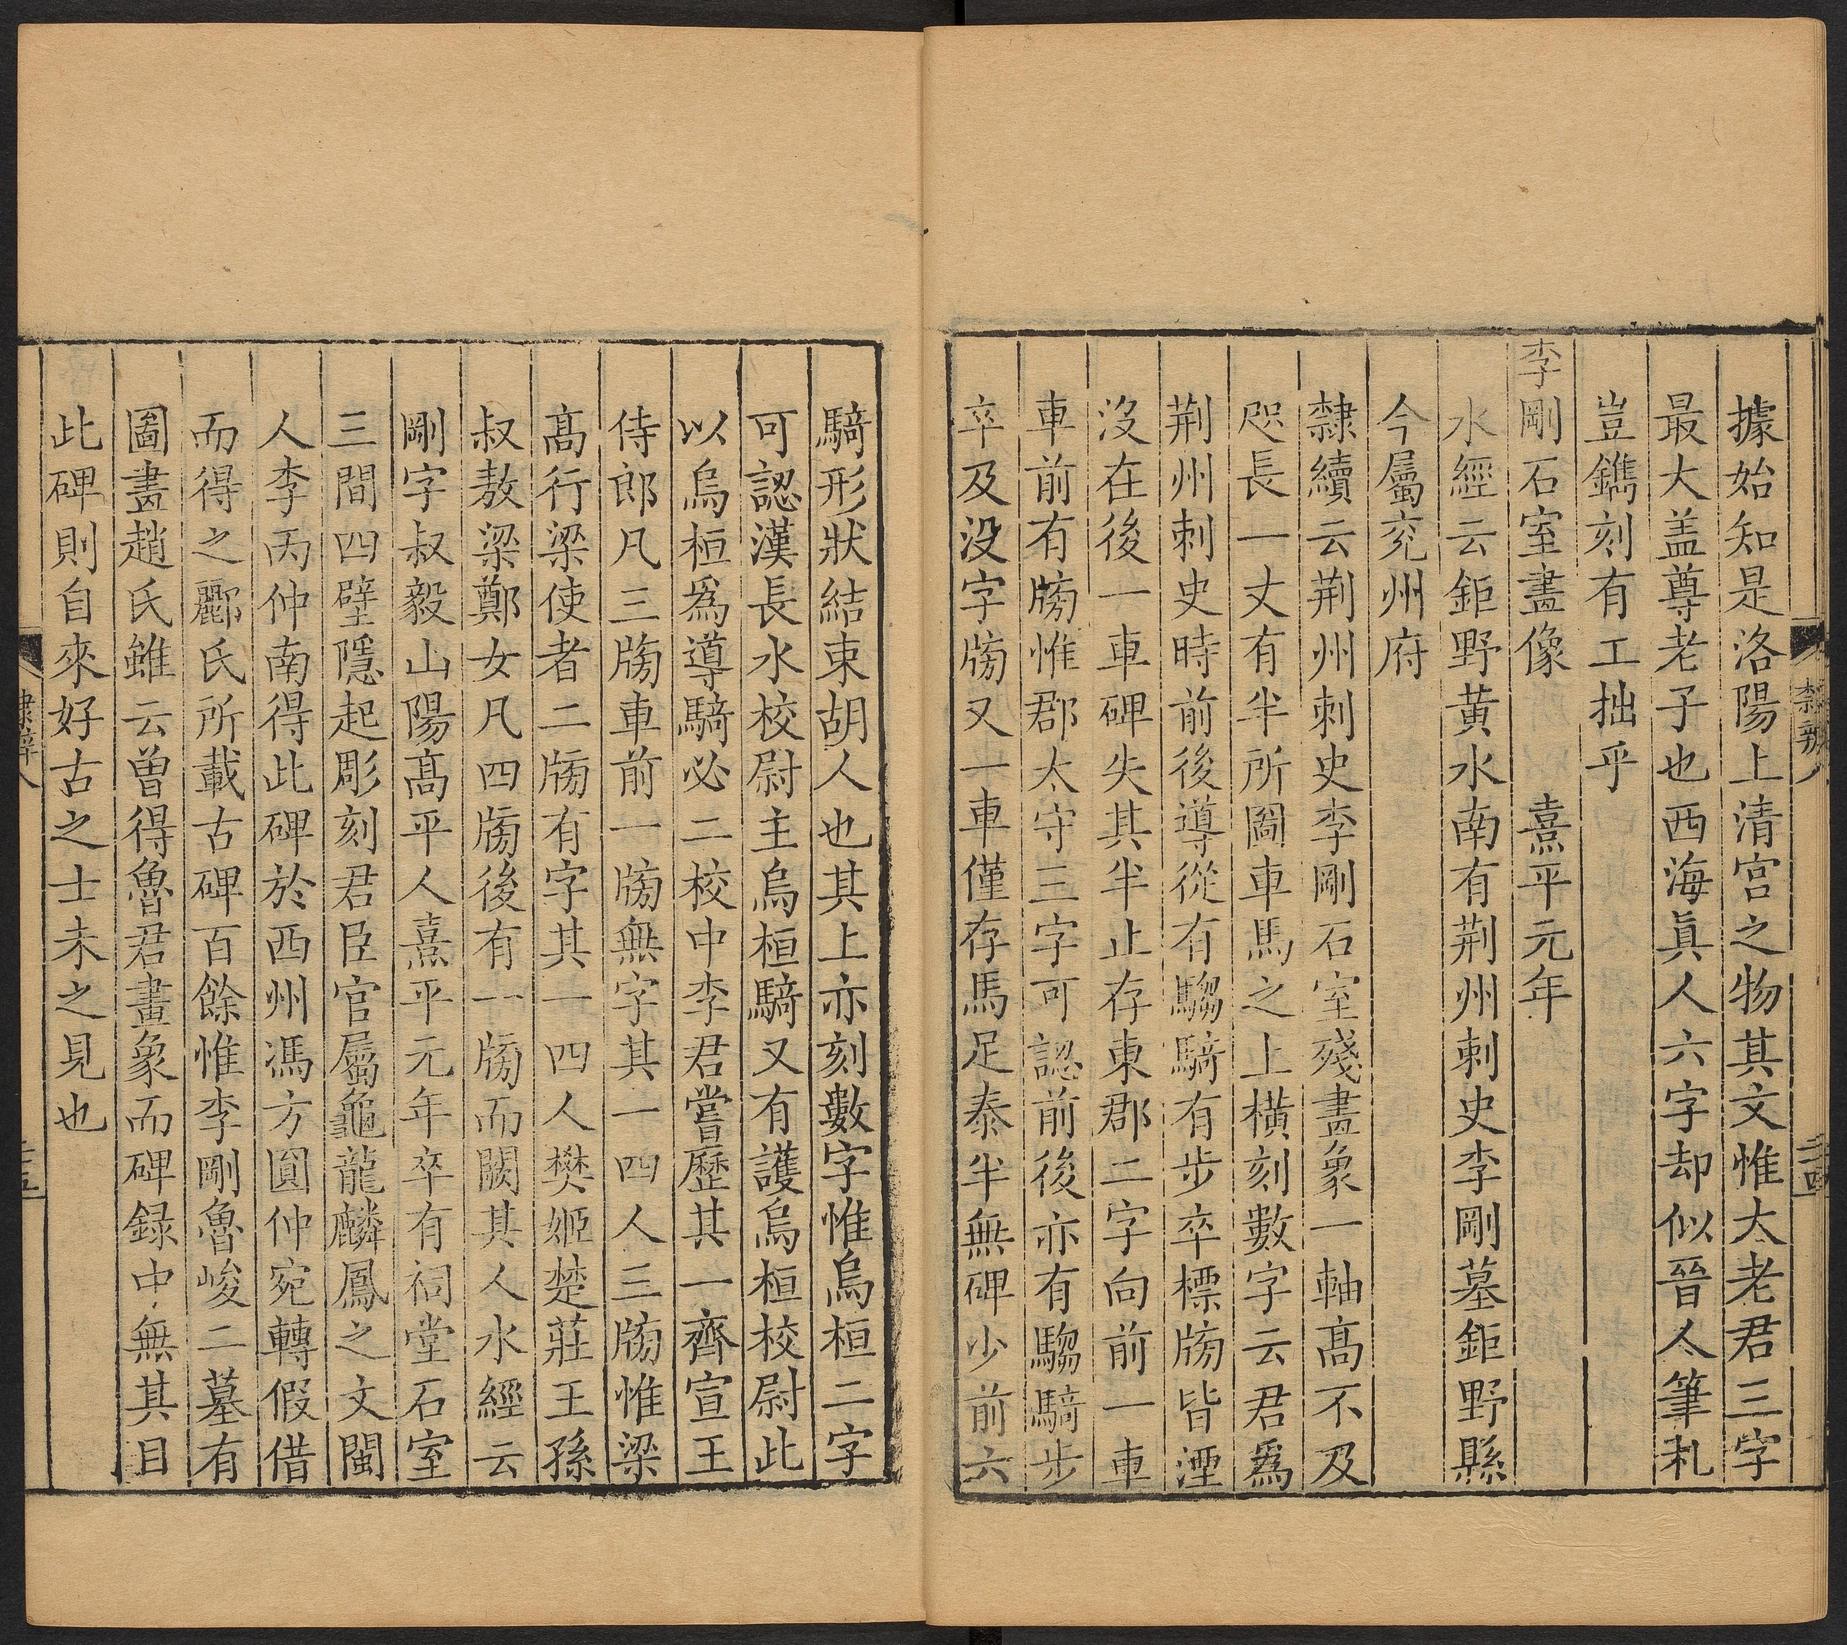 隸辨八
三十四
據始知是洛陽上清宮之物其文惟太老君三字
最大盖尊老子也西海眞人六字却似晉人筆札
豈鐫刻有工拙乎
李剛石室畫像 熹平元年
水經云鉅野黃水南有荆州刺史李剛墓鉅野縣
今屬兖州府
隸續云荆州刺史李剛石室殘畫象一軸髙不及
咫長一丈有半所圖車馬之上橫刻數字云君爲
荆州刺史時前後導從有騶騎有步卒標牓皆湮
沒在後一車碑失其半止存東郡二字向前一車
車前有牓惟郡太守三字可認前後亦有騶騎步
卒及没字牓又一車僅存馬足泰半無碑少前六
騎形狀結束胡人也其上亦刻數字惟烏桓二字
可認漢長水校尉主烏桓騎又有護烏桓校尉此
以烏桓爲導騎必二校中李君嘗歷其一齊宣王
侍郎凡三牓車前一牓無字其一四人三牓惟梁
髙行梁使者二牓有字其一四人樊姬楚莊王孫
叔敖梁鄭女凡四牓後有一牓而闕其人水經云
剛字叔毅山陽髙平人熹平元年卒有祠堂石室
三間四壁隱起彫刻君臣官屬龜龍麟鳳之文閩
人李丙仲南得此碑於西州馮方圓仲宛轉假借
而得之酈氏所載古碑百餘惟李剛魯峻二墓有
圖畫趙氏雖云曾得魯君畫象而碑録中無其目
此碑則自來好古之士未之見也
隸辨八
三十五